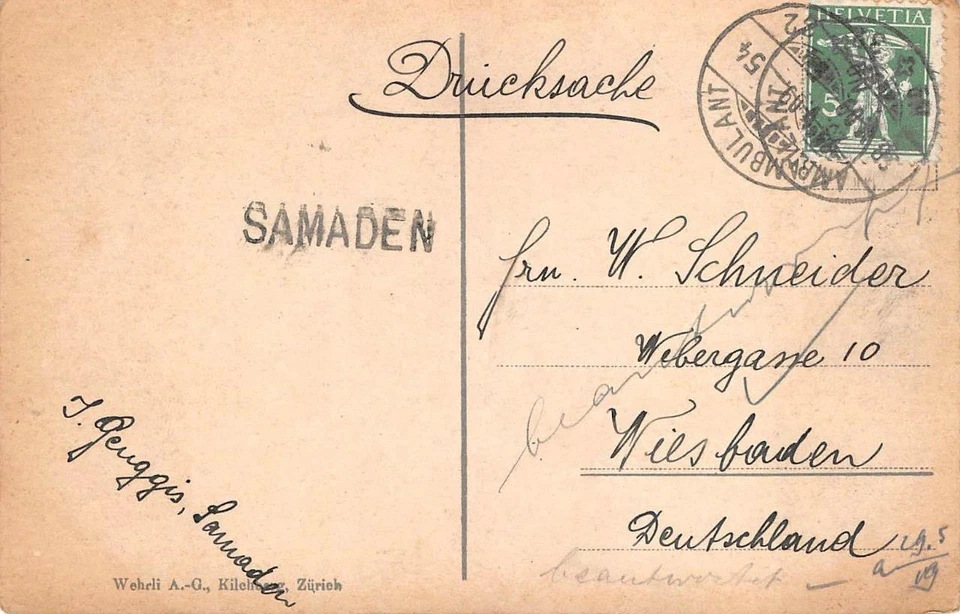 Drucksache
HELVETIA
5
AMBULANT
54
SAMADEN
frn. W. Schneider
Webergasse 10
Wiesbaden
Deutschland
beantwortet
beantwortet
29.5
09
J. Genggis, Samaden
Wehrli A.-G., Kilchberg, Zürich